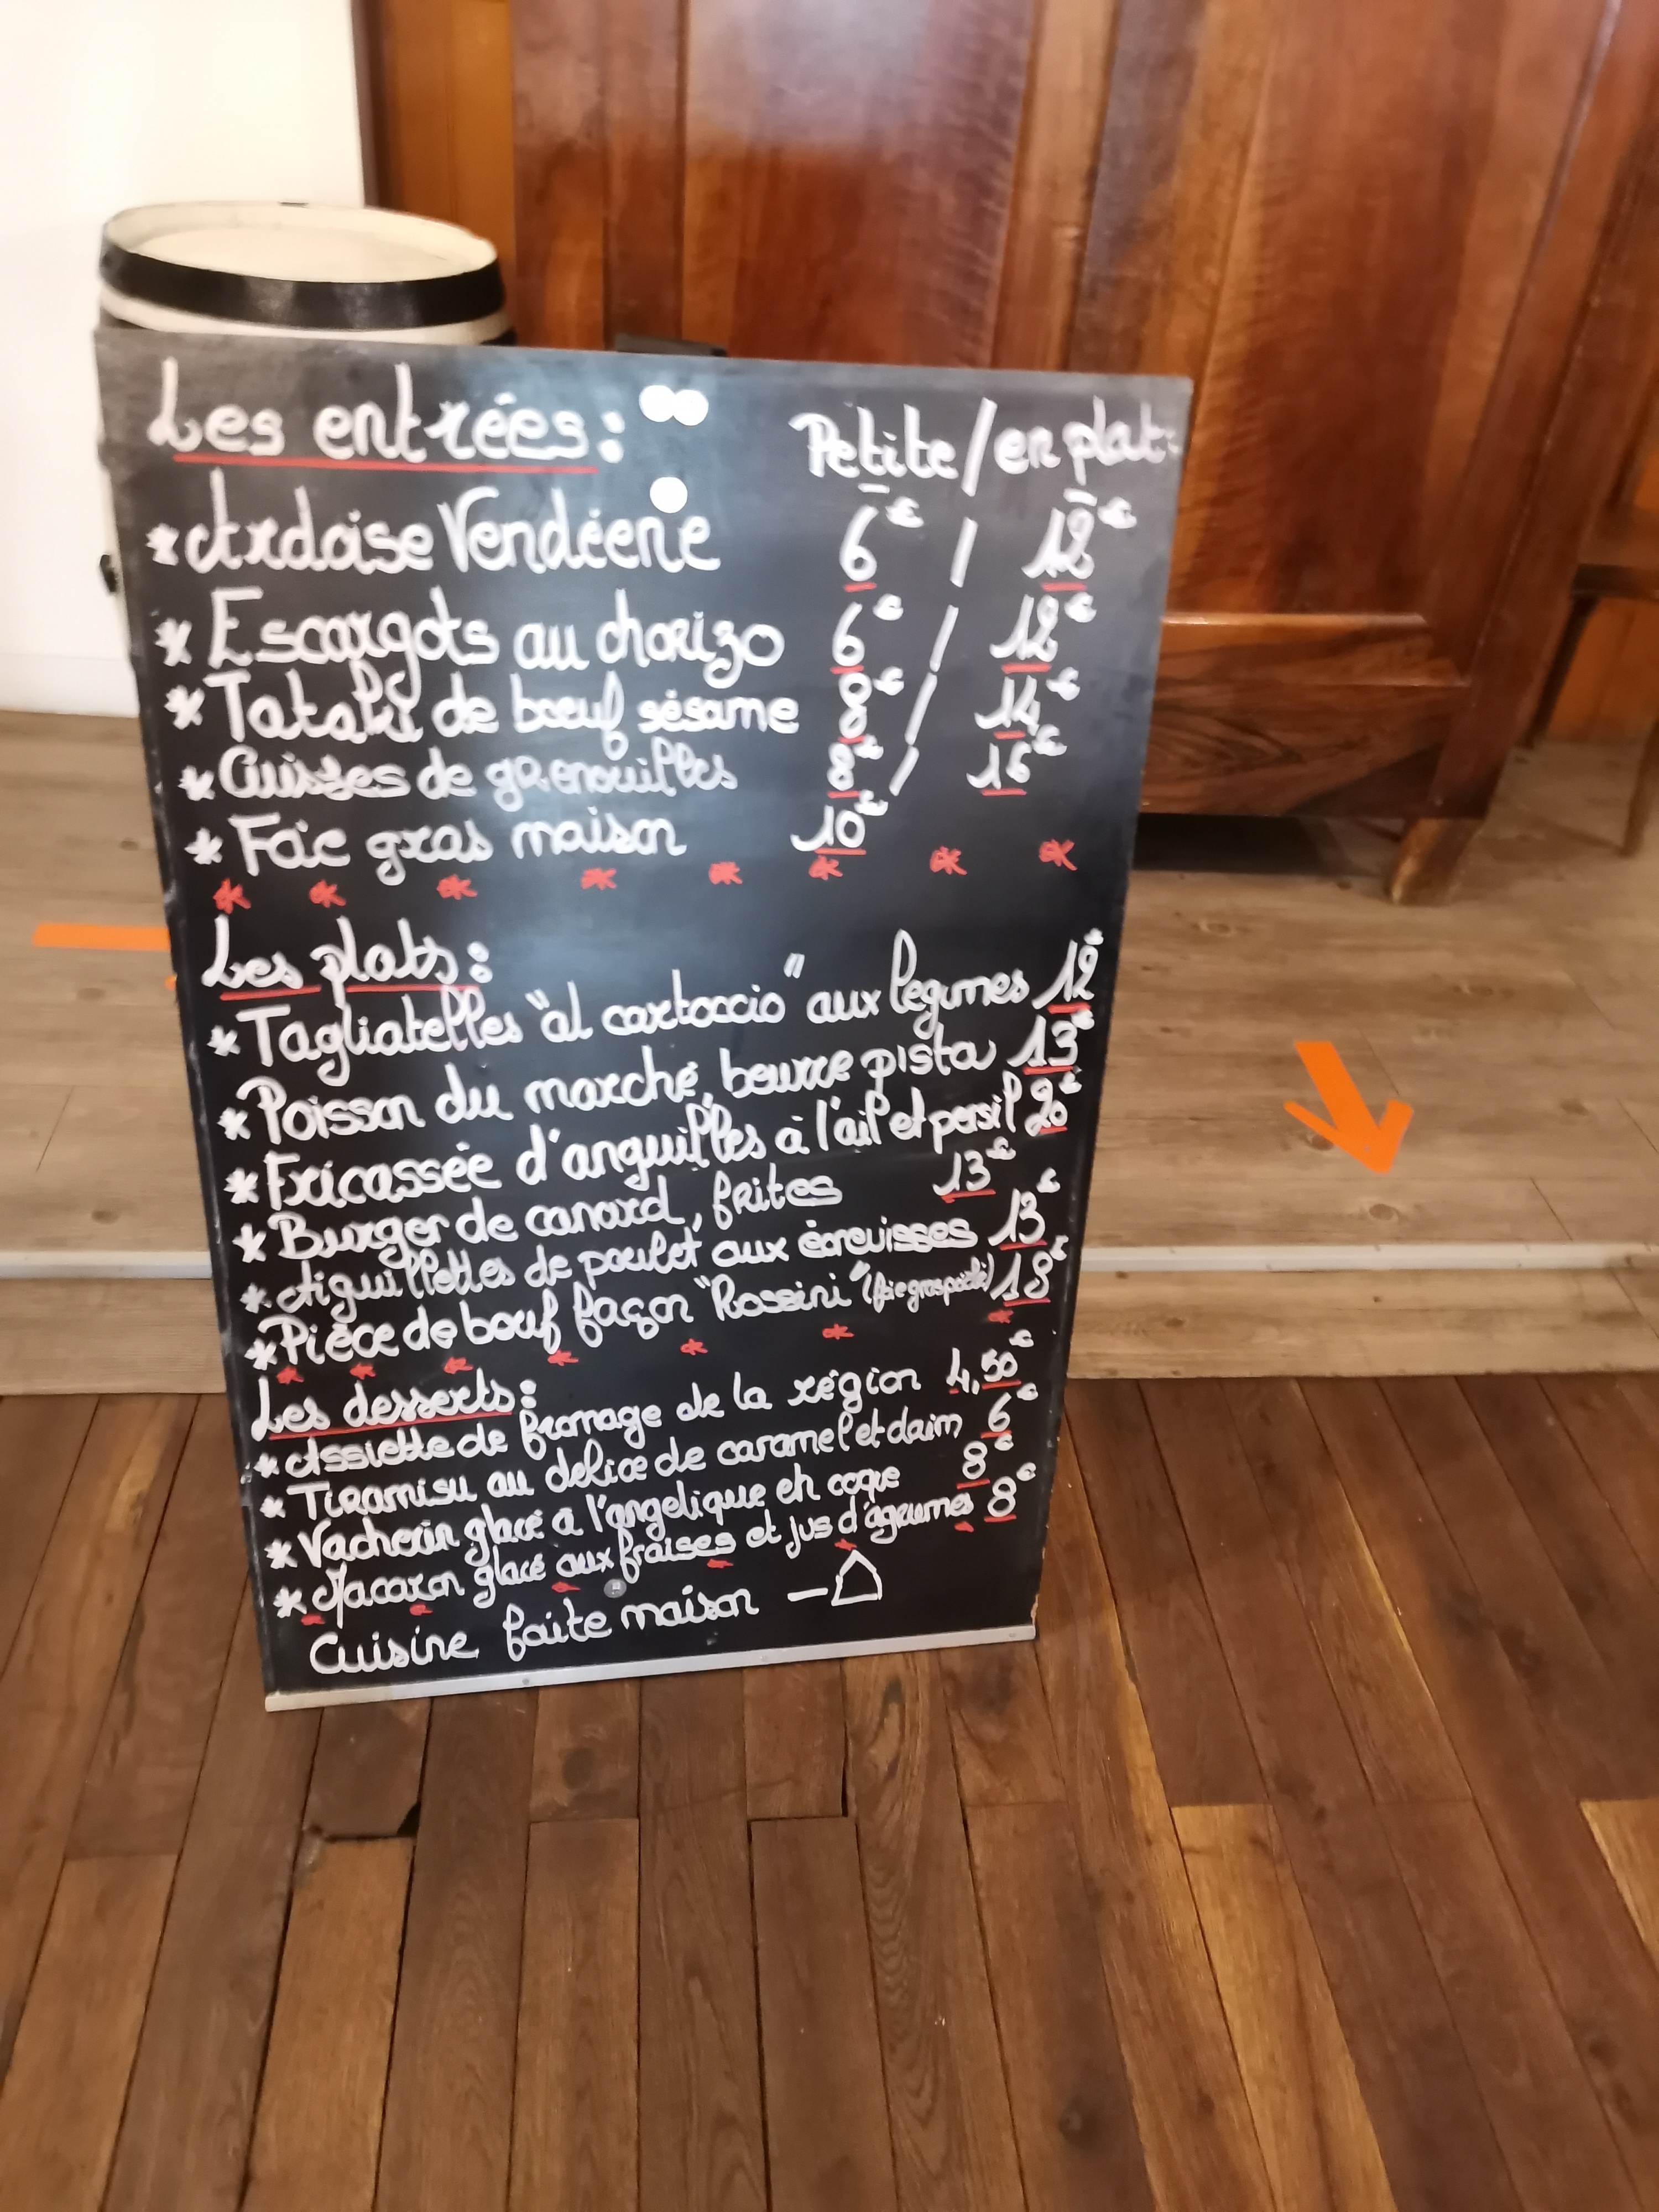 Les entrées: Petite / en plat:
* Ardaise Vendéene 6€ / 12€
* Escargots au chorizo 6€ / 12€
* Tataki de bœuf sésame 8€ / 14€
* Cuisses de grenouilles 8€ / 16€
* Foie gras maison 10€
Les plats:
* Tagliatelles "al cartoccio" aux légumes 12€
* Poisson du marché, beurre pista 13€
* Fricassée d'anguilles à l'ail et persil 20€
* Burger de canard, frites 13€
* Aiguillettes de poulet aux écrevisses 13€
* Pièce de bœuf façon "Rossini" (foie gras poêlé) 18€
Les desserts:
* Assiette de fromage de la région 4,50€
* Tiramisu au délice de caramel et daim 6€
* Vacherin glacé a l'angelique en coque 8€
* Macaron glacé aux fraises et jus d'agrumes 8€
Cuisine faite maison